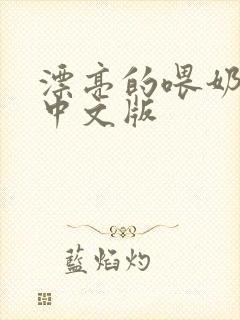 漂亮的喂奶
中文版
藍焰灼